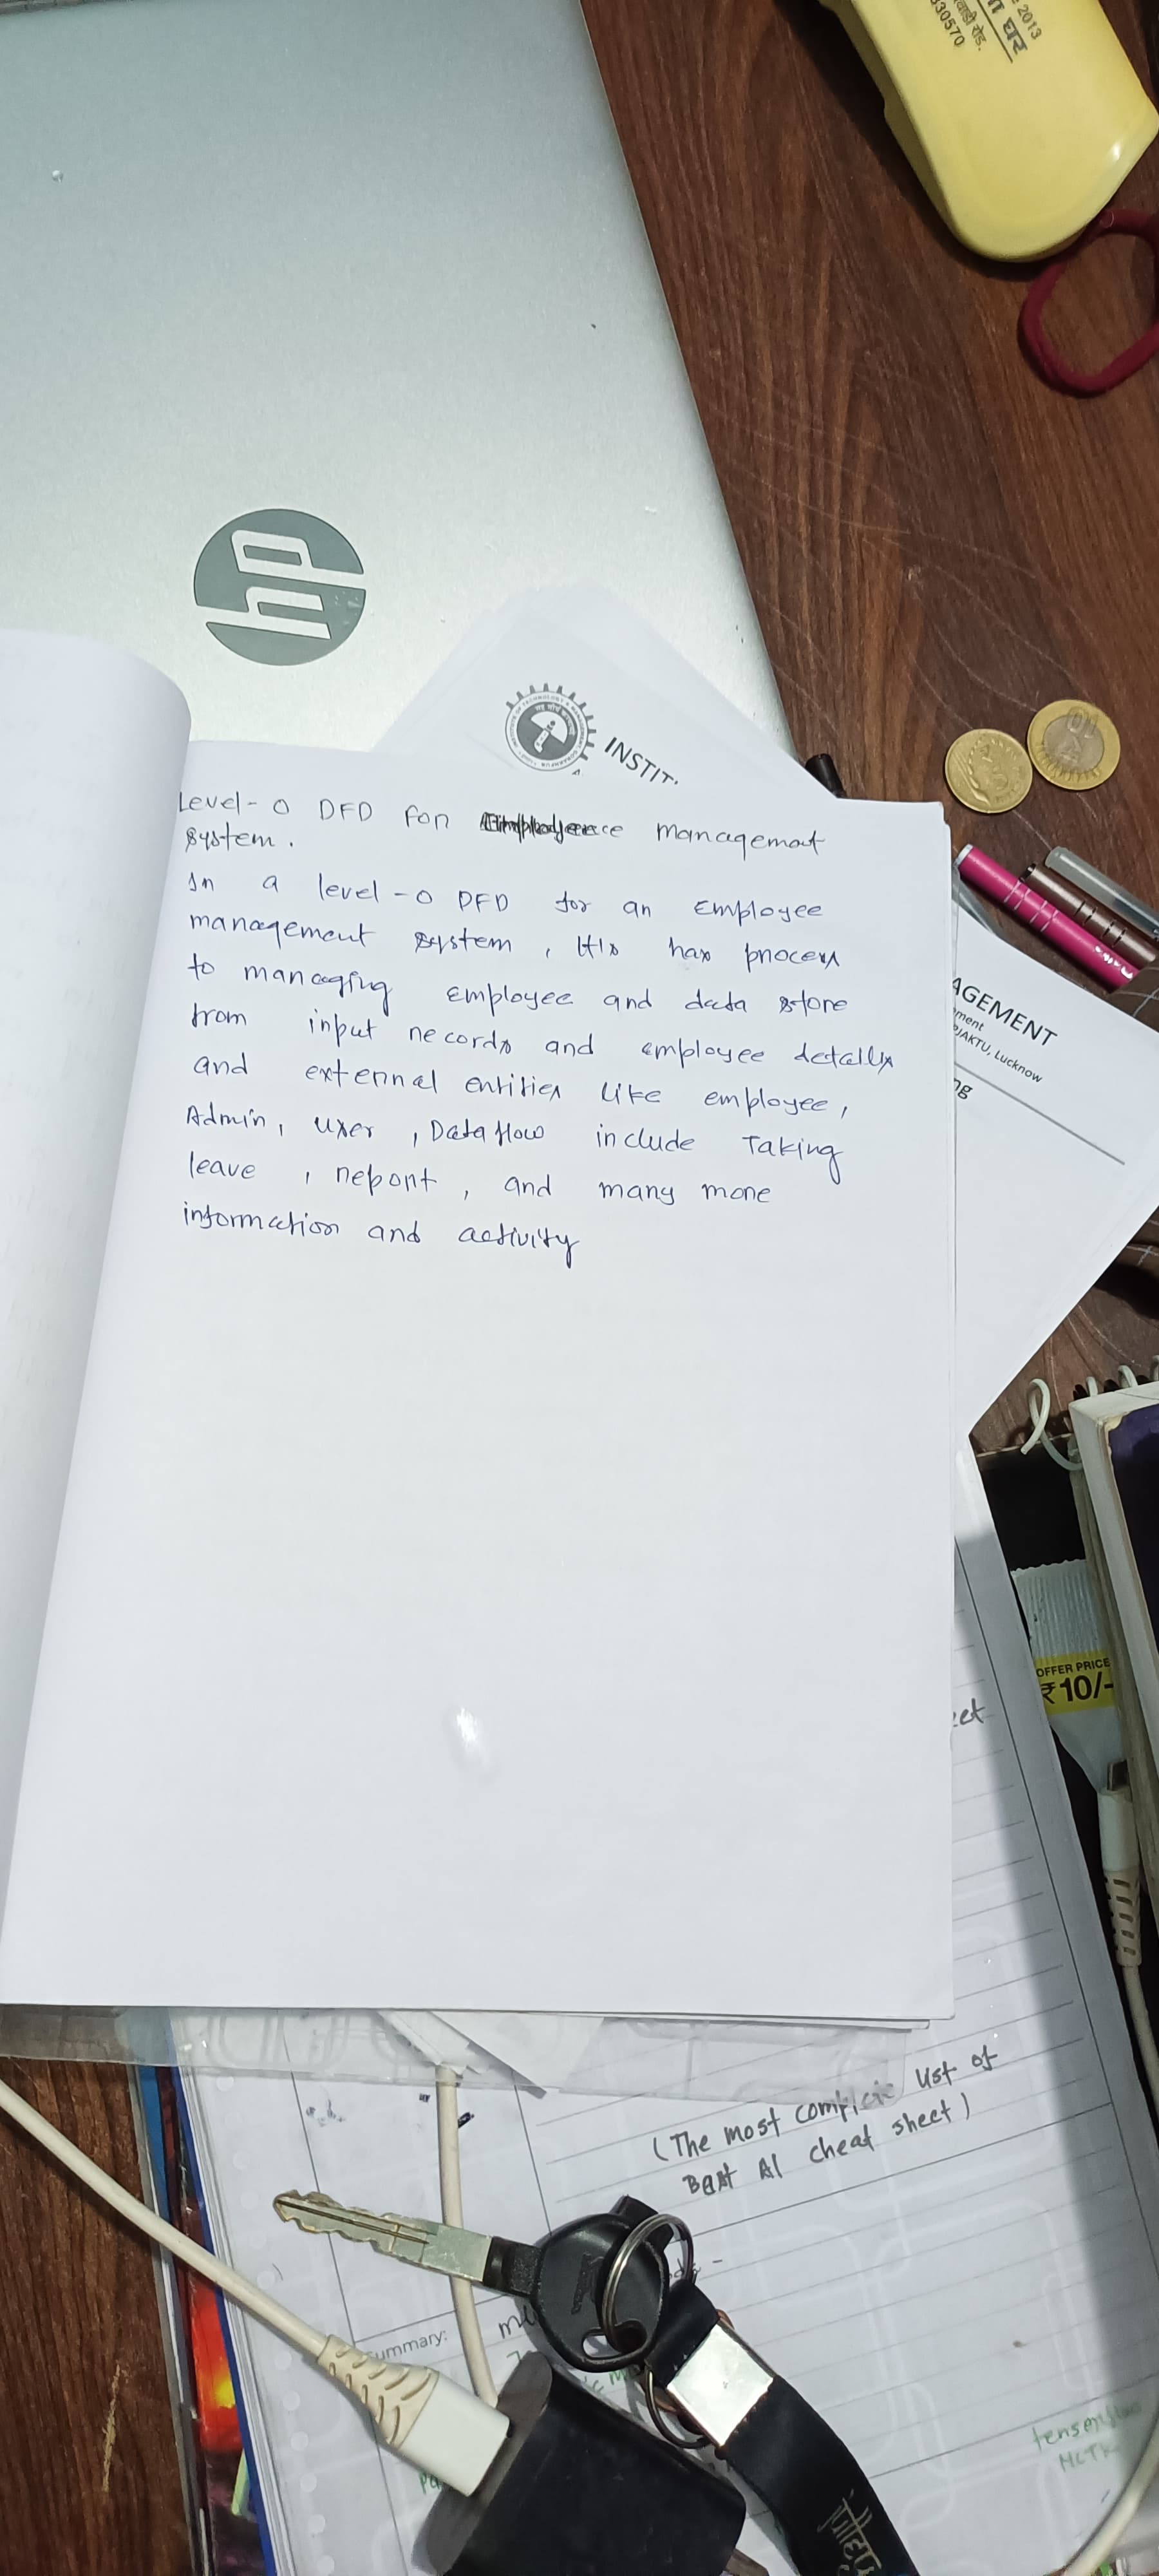 2013
घर
रोड.
330570
hp
INSTIT
Level-0 DFD for Employee management
system.
In a level-0 DFD for an Employee
management system, It is has process
to managing employee and data store
from input records and employee details
and external entities like employee,
Admin, user, Data flow include Taking
leave, report, and many more
information and activity
AGEMENT
ment
AKTU, Lucknow
ng
OFFER PRICE
₹10/-
(The most list of
Best AI cheat sheet)
ummary: